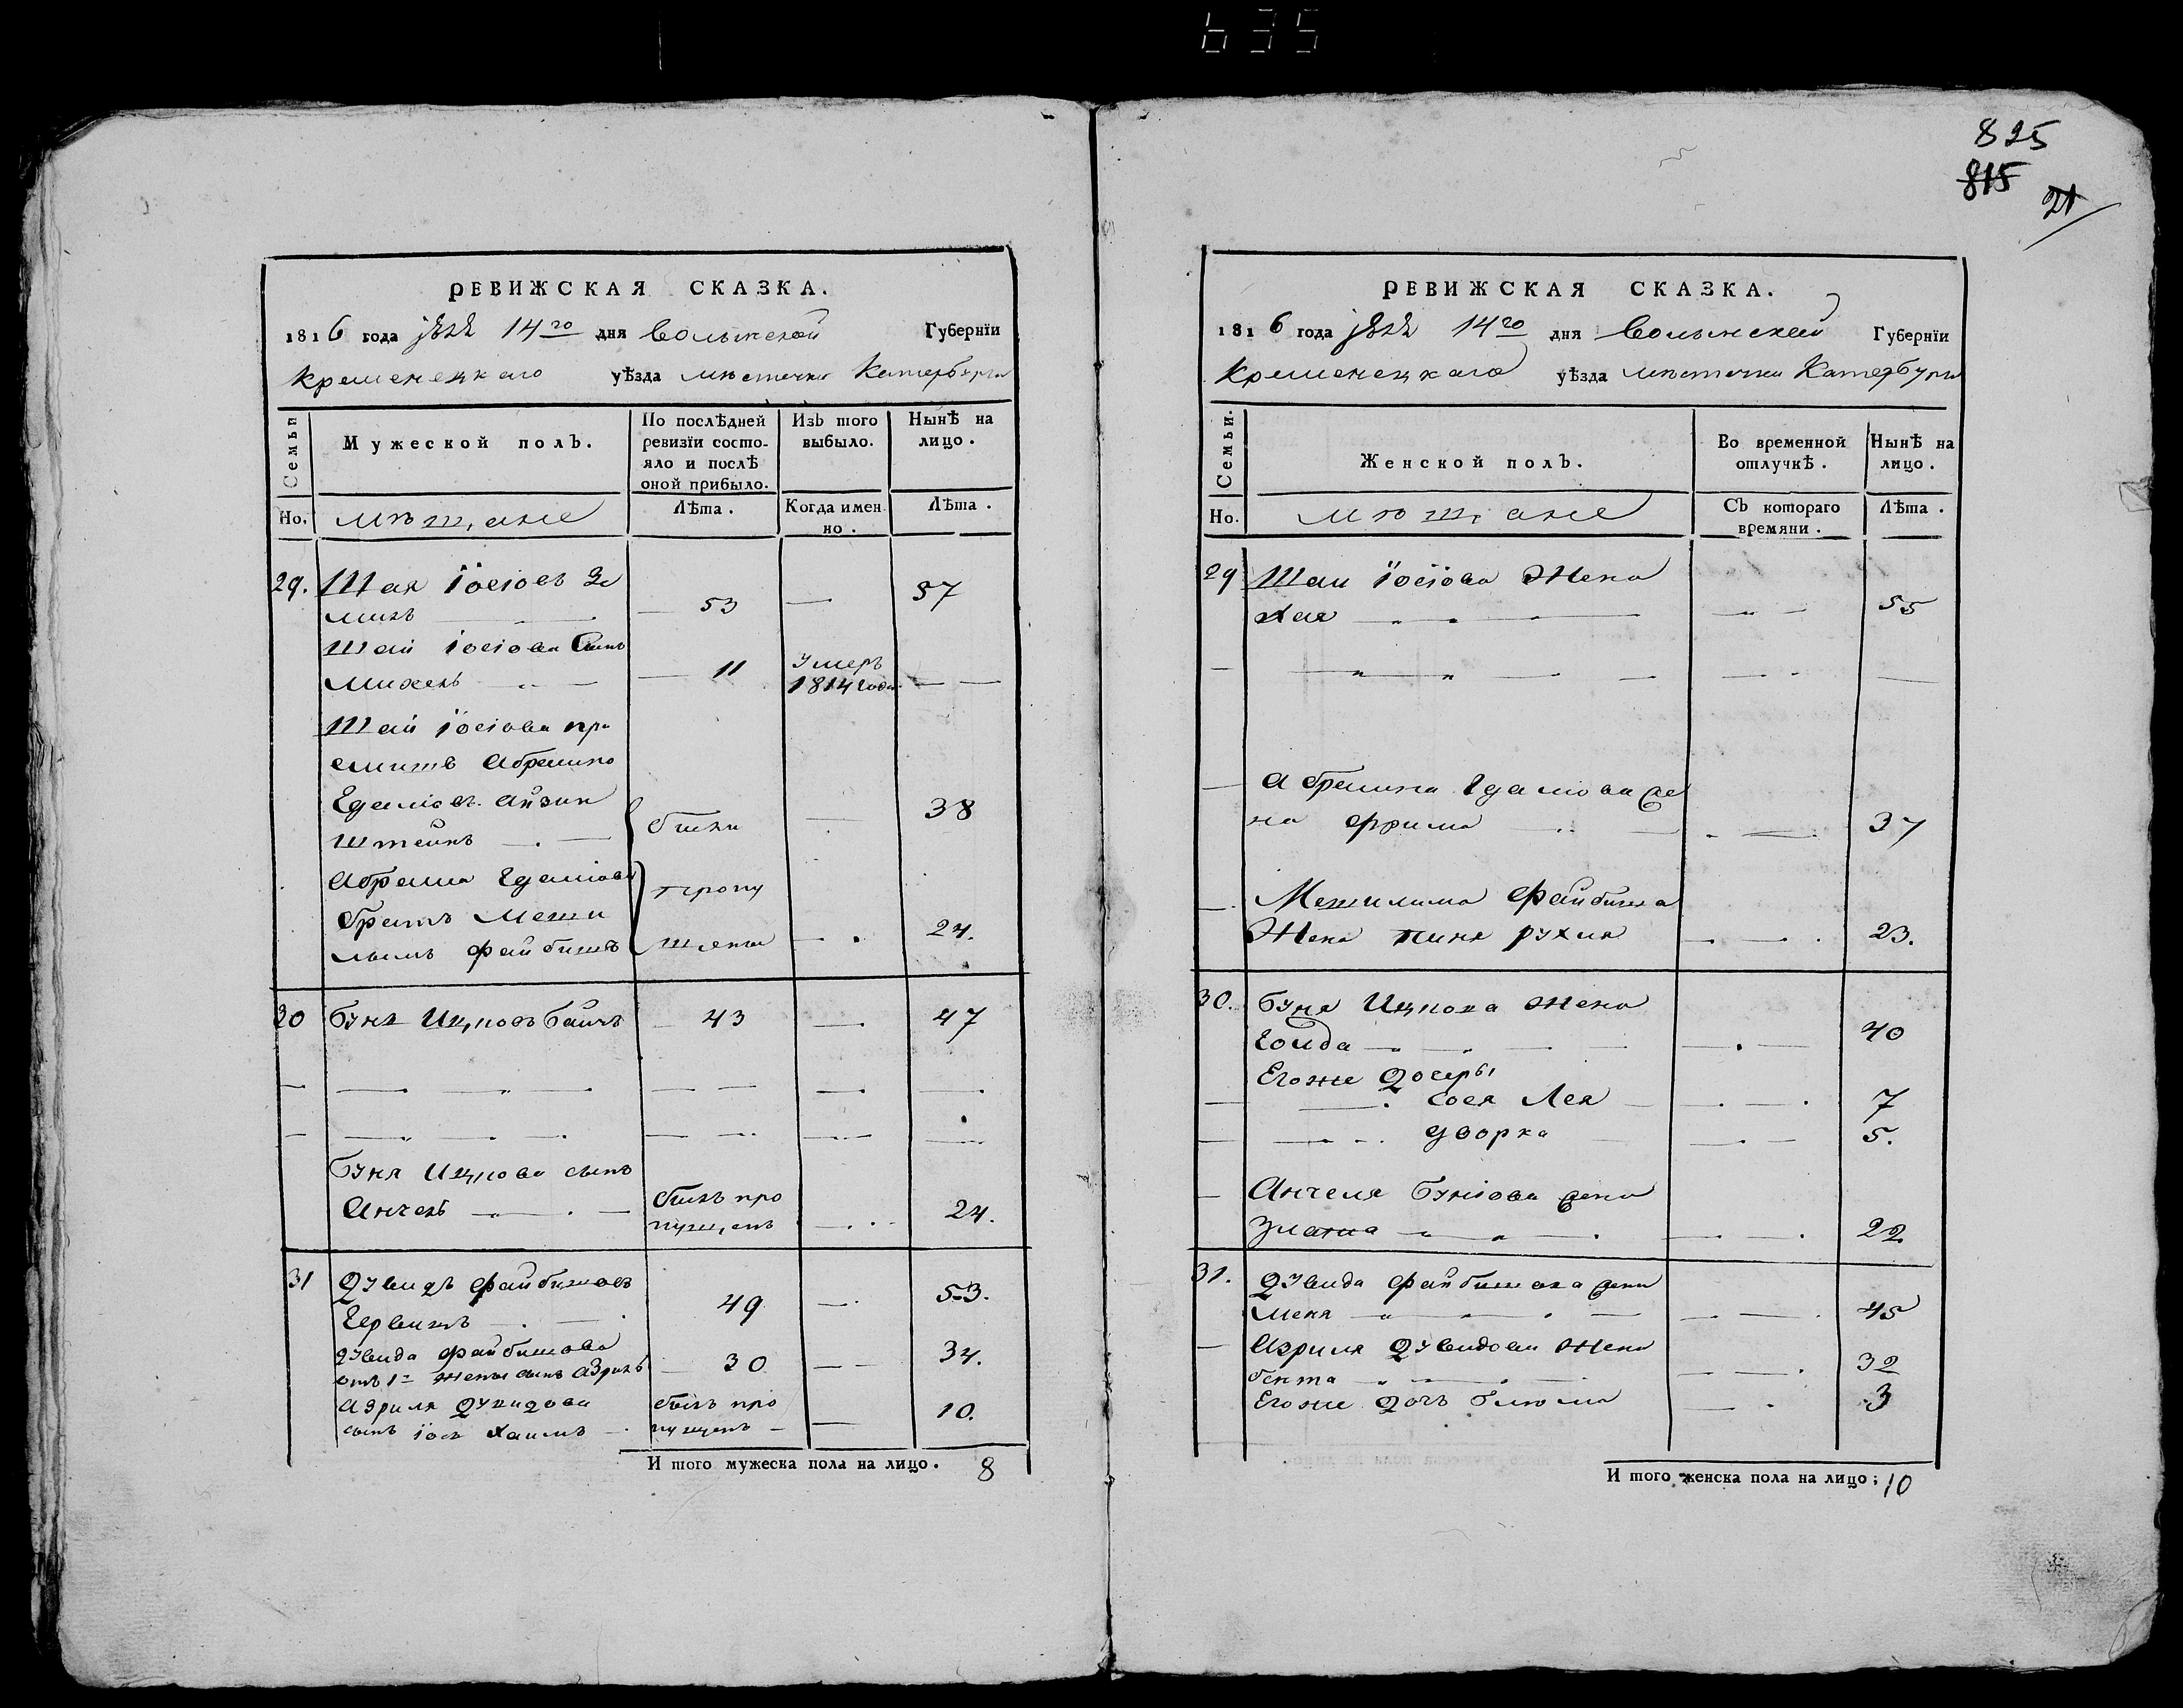 635
825
815
21
РЕВИЖСКАЯ СКАЗКА.
1816 года 14го дня Волынской Губернїи
Кременецкаго уѣзда мѣстечка Катербурга
Семьи
Мужеской полъ.
По послѣдней ревизїи состояло и послѣ оной прибыло.
Изъ того выбыло.
Нынѣ на лицо.
Но.
мѣщане
Лѣта.
Когда именно.
Лѣта.
29. Шая Іосіовъ Зе
— 53 — 57
Шаи Іосіова Сынъ
Михель — 11 Умеръ 1814 года — —
Шаи Іосіова при
емышъ Абрамко
Едаліовъ Айзин
штейнъ были — 38
Абрама Едаліова пропу
братъ Меши
лымъ Файбишъ щены — 24.
30 Буня Ицковъ — 43 — 47
Буня Ицкова сынъ
Анчель былъ про
пущенъ — 24.
31 Дувидъ Файбишовъ
49 — 53.
Дувида Файбишова
отъ 1й жены сынъ Азриль — 30 — — 34.
Азриля Дувидова былъ про
сынъ Іось Хаимъ пущенъ — 10.
И того мужеска пола на лицо. 8
РЕВИЖСКАЯ СКАЗКА.
1816 года 14го дня Волынской Губернїи
Кременецкаго уѣзда мѣстечка Катербурга
Семьи.
Женской полъ.
Во временной отлучкѣ.
Нынѣ на лицо.
Но.
мѣщане
Съ котораго времяни.
Лѣта.
29 Шаи Іосіова Жена
Хая 55
Абрамка Едаліова же
на Фрима 37
Мешилима Файбиша
Жена Пиня Рухля 23.
30. Буня Ицкова жена
Голда 40
Егоже Дочери
Сося Лея 7
Дворка 5.
Анчеля Буніова жена
Злата 22.
31. Дувида Файбишова жена
Меня 45
Азриля Дувидова Жена
32
Егоже Дочь Блюма 3
И того женска пола на лицо; 10